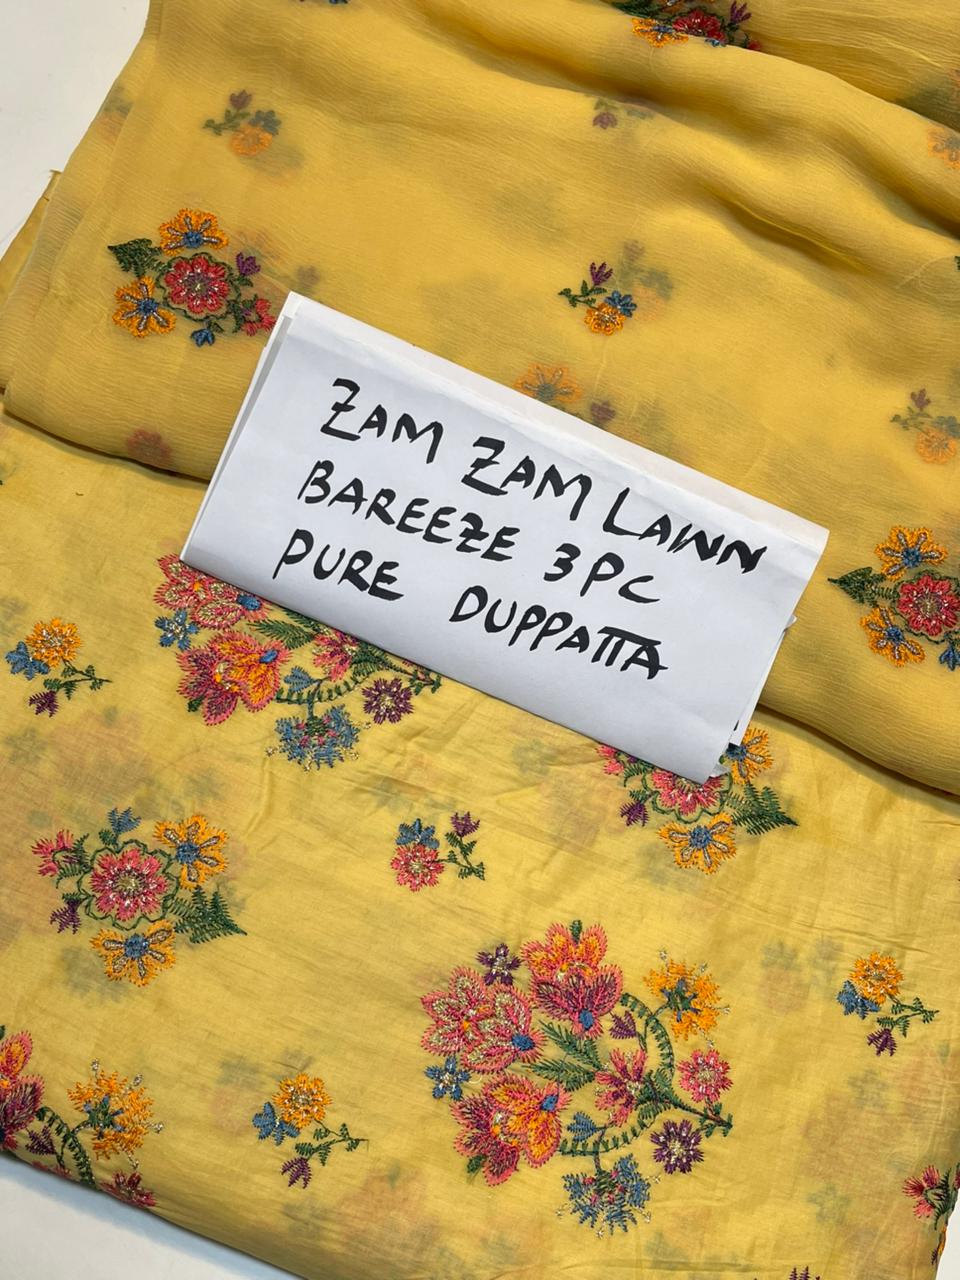 ZAM ZAM LAWN
BAREEZE 3PC
PURE DUPPATTA